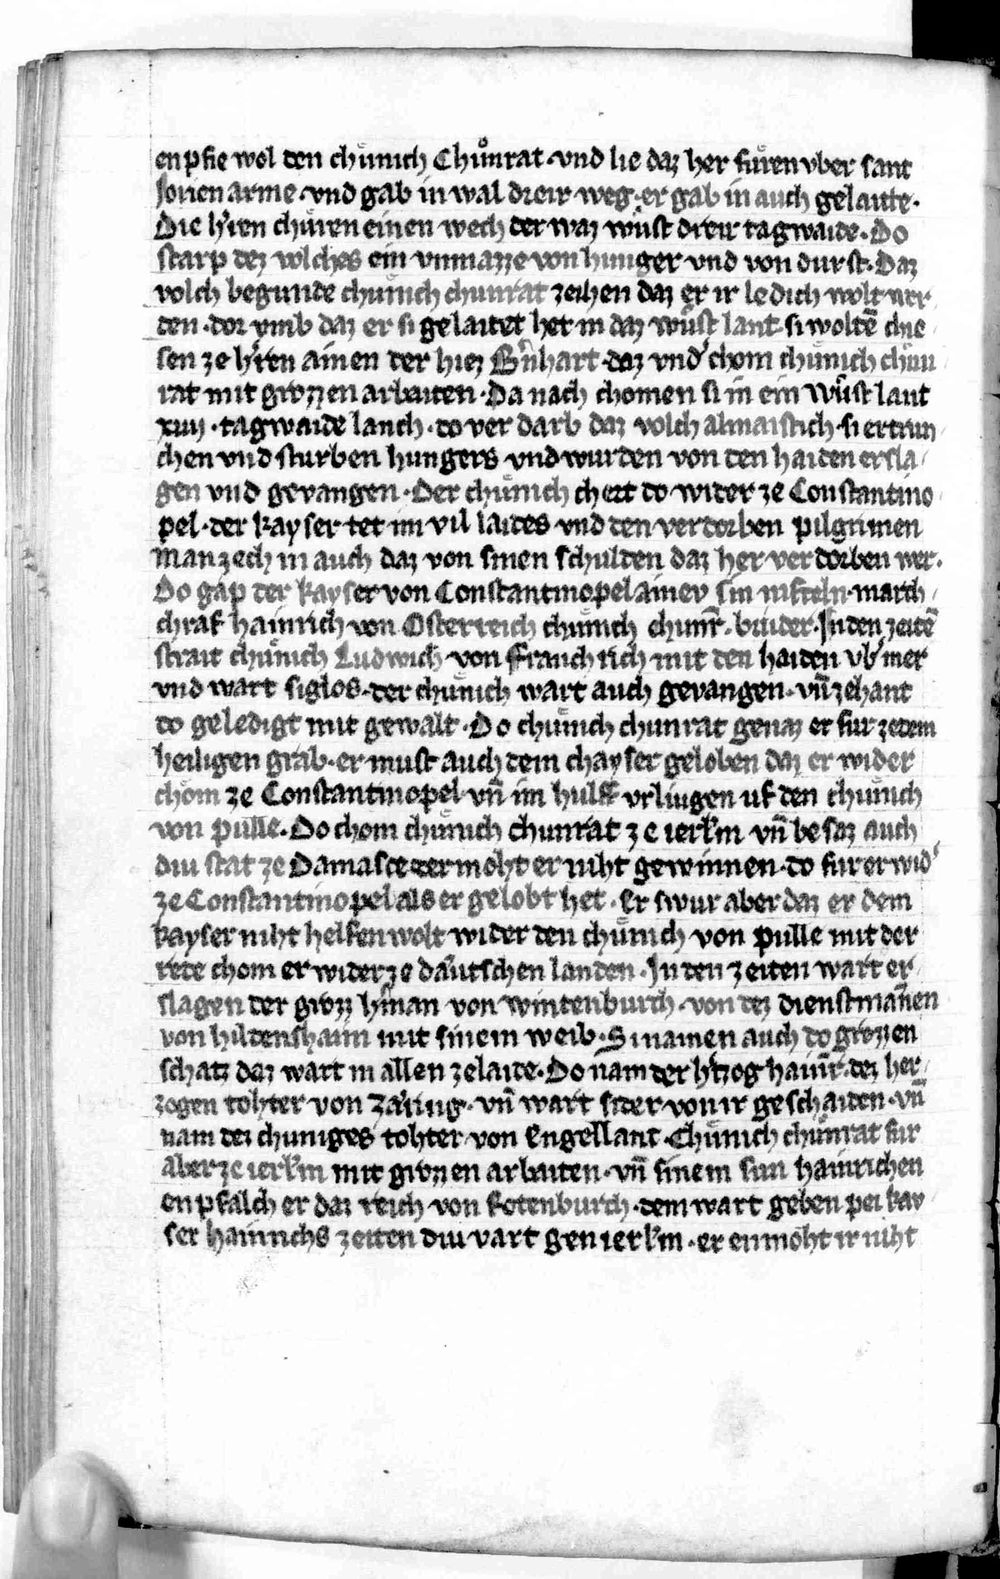 enpfie wol den chuͤnich Chuͦnrat · vnd lie daz her fuͤren vber sant
Jorien arme · vnd gab in wal dreir weg · er gab in auch gelaute ·
Die h'ren chuͤren einen wech der waz wuͤst dreir tagwaide · Do
starp dez volches ein vnmazze von hunger vnd von durst · Daz
volch begunde chuͤnich chunrat zeihen daz er ir ledich wolt wer
den · dor vmb daz er si gelaitet het in daz wuͤst lant · si woltē chie
sen ze h'ren ainen der hiez B'nhart · daz vnd' chom chuͤnich chuͤn
rat mit grozzen arbaiten · Da nach chomen si in ein wuͤst lant
xiiij · tagwaide lanch · do verdarb daz volch almaistich · si ertrun
chen vnd sturben hungers vnd wurden von den haiden ersla
gen vnd gevangen · Der chuͤnich chert do wider ze Constantino
pel · der kayser tet im vil laides vnd den verdorben pilgrimen
man zech in auch daz von sinen schulden daz her verdorben wer ·
Do gap der kayser von Constantinopel ainev sin nifteln · march
chraf hainrich von Osterreich chuͤnich chunr̄ · bruder · In den zeitē
strait chuͤnich Ludwich von Franchrich mit den haiden vb' mer
vnd wart siglos · der chuͤnich wart auch gevangen · vn̄ zehant
do geledigt mit gewalt · Do chuͤnich chunrat genaz er fur zedem
heiligen grab · er must auch dem chayser geloben daz er wider
chom ze Constantinopel vn̄ im hulff vrliugen uf den chuͤnich
von pulle · Do chom chuͤnich chunrat ze ierl'm vn̄ besaz auch
diu stat ze Damasce der moht er niht gewinnen · do fur er wid'
ze Constantinopel als er gelobt het · Er swur aber daz er dem
kayser niht helfen wolt wider den chuͤnich von pulle mit der
rede chom er wider ze daͤutschen landen · In den zeiten wart er
slagen der groz h'man von wintenburch · von dez dienstmañen
von hildenshaim mit sinem weib · Si namen auch do grozzen
schatz daz wart in allen zelaide · Do nam der h'tzog hainr̄ · dez her
zogen tohter von Zaͤring · vn̄ wart sider von ir geschaiden · vn̄
nam dez chuniges tohter von Engellant · Chuͤnich chuͦnrat fur
aber ze ierl'm mit grozzen arbaiten · vn̄ sinem sun hainrichen
enpfalch er daz reich von Rotenburch · dem wart geben pei kay
ser hainrichs zeiten diu vart gen ierl'm · er enmoht ir niht